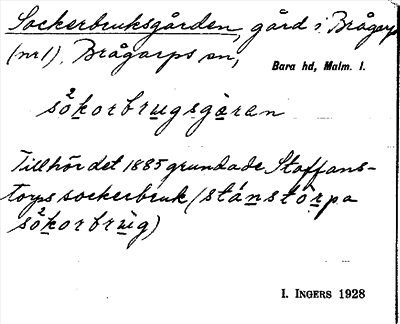 Sockerbruksgården, gård i Brågarp
(nr 1), Brågarps sn,
Bara hd, Malm. l.
sǒkorbrugsgǫran
Tillhör det 1885 grundade Staffans-
torps sockerbruk (stánstòrpa
sǒkorbrùg)
I. INGERS 1928